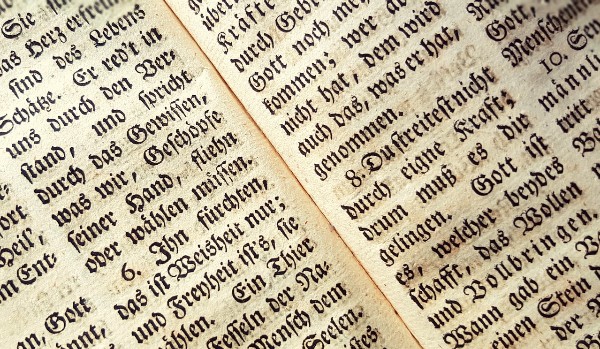 Sie
das Herz
ſind des Lebens
Schätze. Er red't in
uns durch den Ver-
ſtand, und ſpricht
durch das Gewiſſen,
was wir, Geſchöpfe
ſeiner Hand, fliehn
oder wählen müſſen.
6. Ihn fürchten,
das iſt Weisheit nur;
und Freyheit iſt's, ſie
wählen. Ein Thier
Feſſeln der Na-
Menſch dem
Seelen.
Kräfte
durch
Gott noch
kommen; wer
nicht hat, dem wird
auch das, was er hat,
genommen.
8. Du ſtreiteſt nicht
durch eigne Kraft;
drum muß es dir
gelingen. Gott iſt
es, welcher beydes
ſchafft, das Wollen
und Vollbringen.
Wann gab ein
einen Stein
der
Gott,
10.
tritt